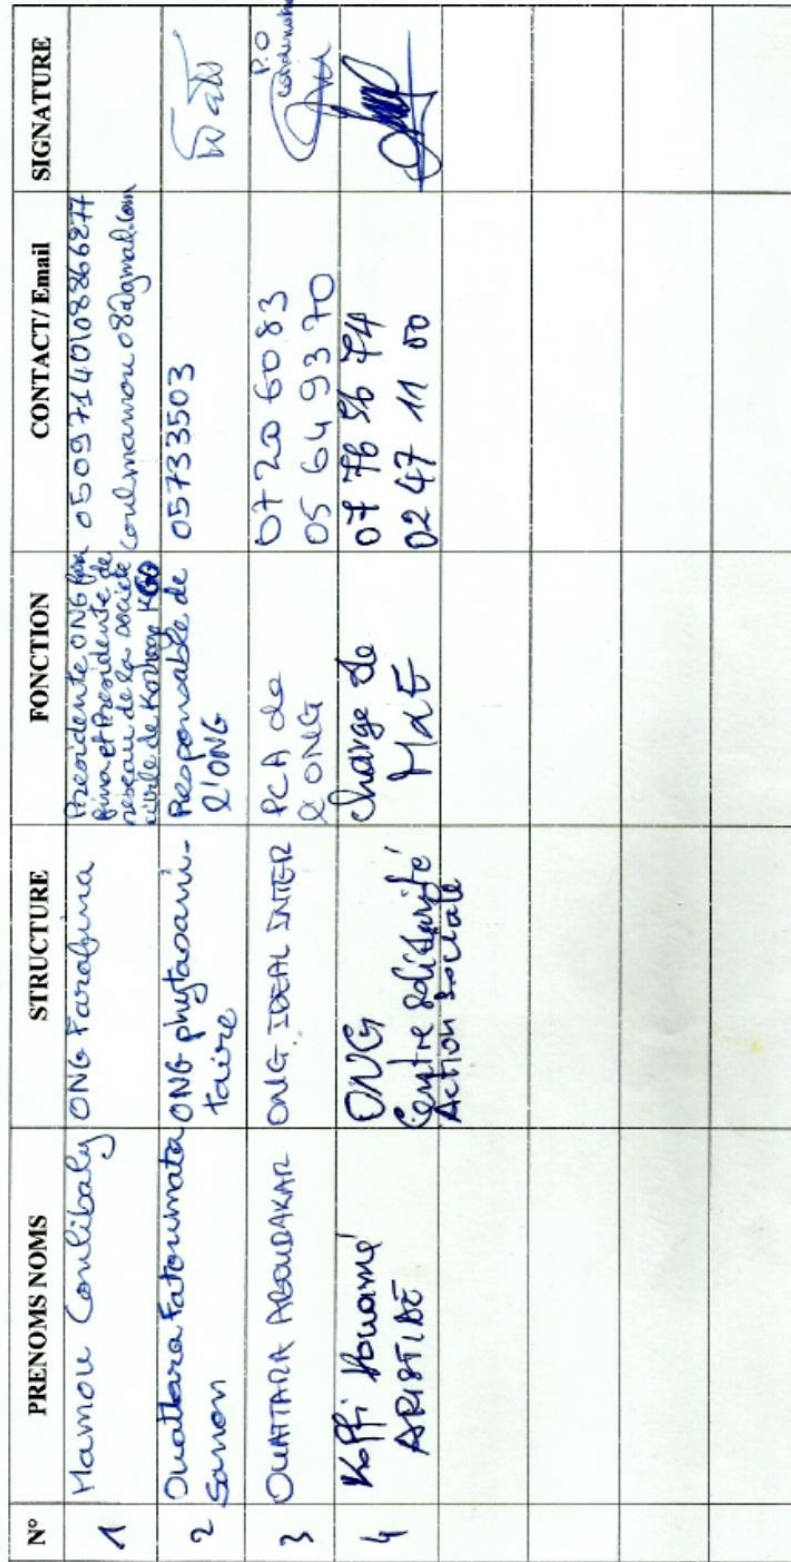 N° PRENOMS NOMS STRUCTURE FONCTION CONTACT/ Email SIGNATURE
1 Mamou Coulibaly ONG Farafina Presidente ONG Fara
fina et Presidente de
reseau de la societe
civile de Korhogo
05097140/08866277
Coulmamou08@gmail.com
2 Ouattara Fatoumata
Sanon
ONG phytosani-
taire
Responsable de
l'ONG
05733503
3 OUATTARA ABOUDAKAR ONG IDEAL INTER PCA de
l'ONG
07 20 60 83
05 64 93 70
P.O
4 Koffi Kouamé
ARISTIDE
ONG
Centre solidarité
Action sociale
Charge de
07 76 56 74
02 47 11 00